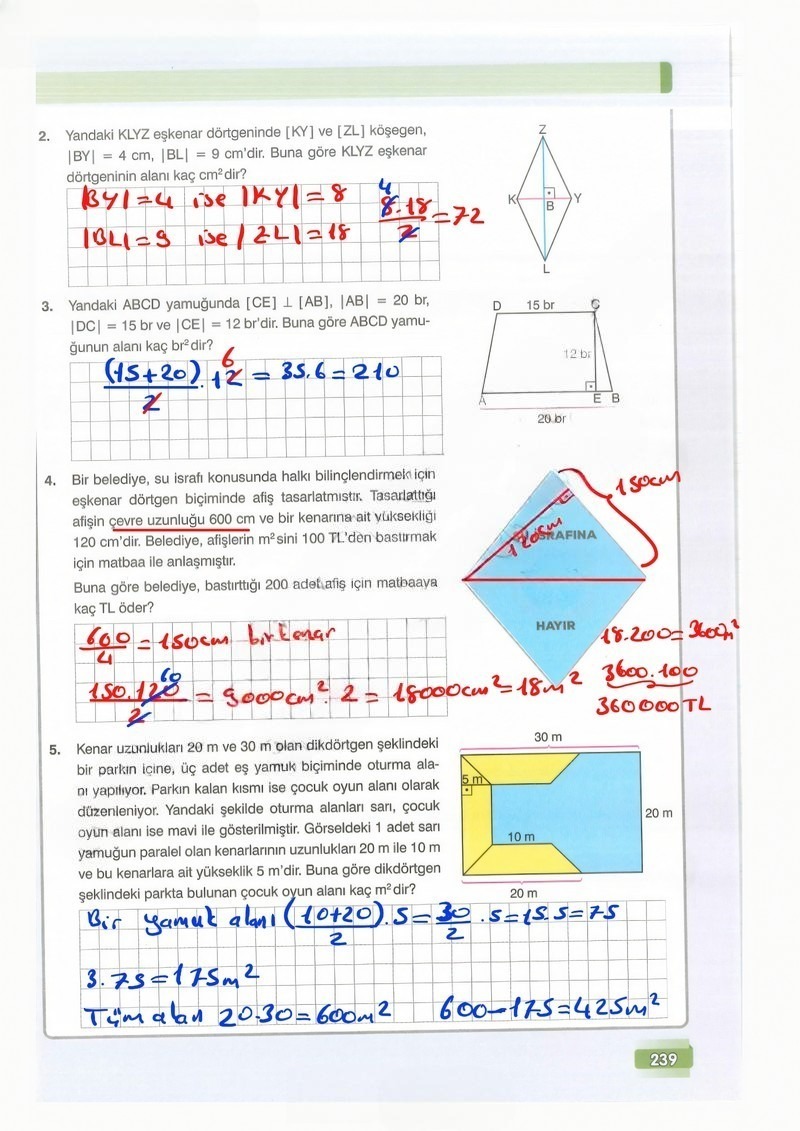 2. Yandaki KLYZ eşkenar dörtgeninde [KY] ve [ZL] köşegen,
|BY| = 4 cm, |BL| = 9 cm'dir. Buna göre KLYZ eşkenar
dörtgeninin alanı kaç cm² dir?
|BY|=4 ise |KY|=8
|BL|=9 ise |ZL|=18
4
8.18
2
=72
Z
K
B
Y
L
3. Yandaki ABCD yamuğunda [CE] ⊥ [AB], |AB| = 20 br,
|DC| = 15 br ve |CE| = 12 br'dir. Buna göre ABCD yamu-
ğunun alanı kaç br² dir?
6
(15+20) . 12 = 35.6 = 210
2
D 15 br C
12 br
A E B
20 br
4. Bir belediye, su israfı konusunda halkı bilinçlendirmek için
eşkenar dörtgen biçiminde afiş tasarlatmıştır. Tasarlattığı
afişin çevre uzunluğu 600 cm ve bir kenarına ait yüksekliği
120 cm'dir. Belediye, afişlerin m² sini 100 TL'den bastırmak
için matbaa ile anlaşmıştır.
Buna göre belediye, bastırttığı 200 adet afiş için matbaaya
kaç TL öder?
150cm
120cm
İSRAFINA
HAYIR
600
4
= 150cm bir kenar
60
150.120
2
= 9000cm². 2 = 18000cm² = 18m²
18.200=3600m²
3600.100
360000TL
5. Kenar uzunlukları 20 m ve 30 m olan dikdörtgen şeklindeki
bir parkın içine, üç adet eş yamuk biçiminde oturma ala-
nı yapılıyor. Parkın kalan kısmı ise çocuk oyun alanı olarak
düzenleniyor. Yandaki şekilde oturma alanları sarı, çocuk
oyun alanı ise mavi ile gösterilmiştir. Görseldeki 1 adet sarı
yamuğun paralel olan kenarlarının uzunlukları 20 m ile 10 m
ve bu kenarlara ait yükseklik 5 m'dir. Buna göre dikdörtgen
şeklindeki parkta bulunan çocuk oyun alanı kaç m² dir?
30 m
5 m
20 m
10 m
20 m
Bir yamuk alanı (10+20) . 5 = 30 . 5 = 15.5 = 75
2 2
3. 75 = 175m²
Tüm alan 20.30 = 600m² 600-175=425m²
239